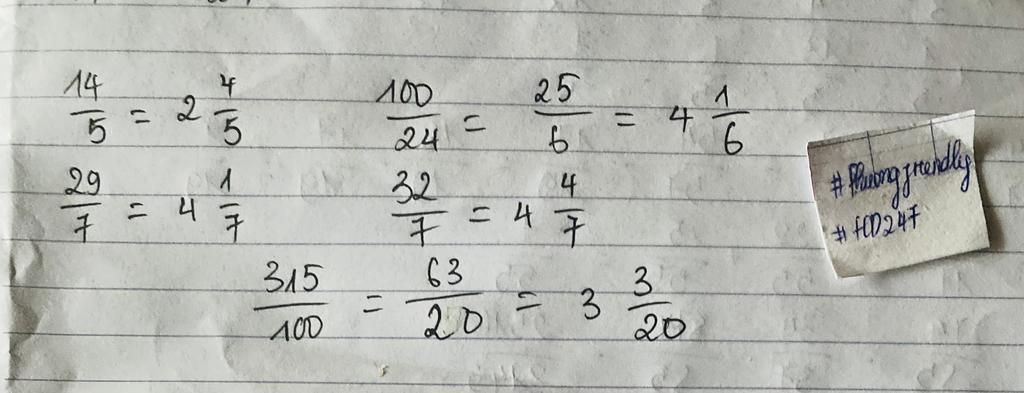 14/5 = 2 4/5    100/24 = 25/6 = 4 1/6
29/7 = 4 1/7    32/7 = 4 4/7
315/100 = 63/20 = 3 3/20
#Phuongfriendly
#HD247